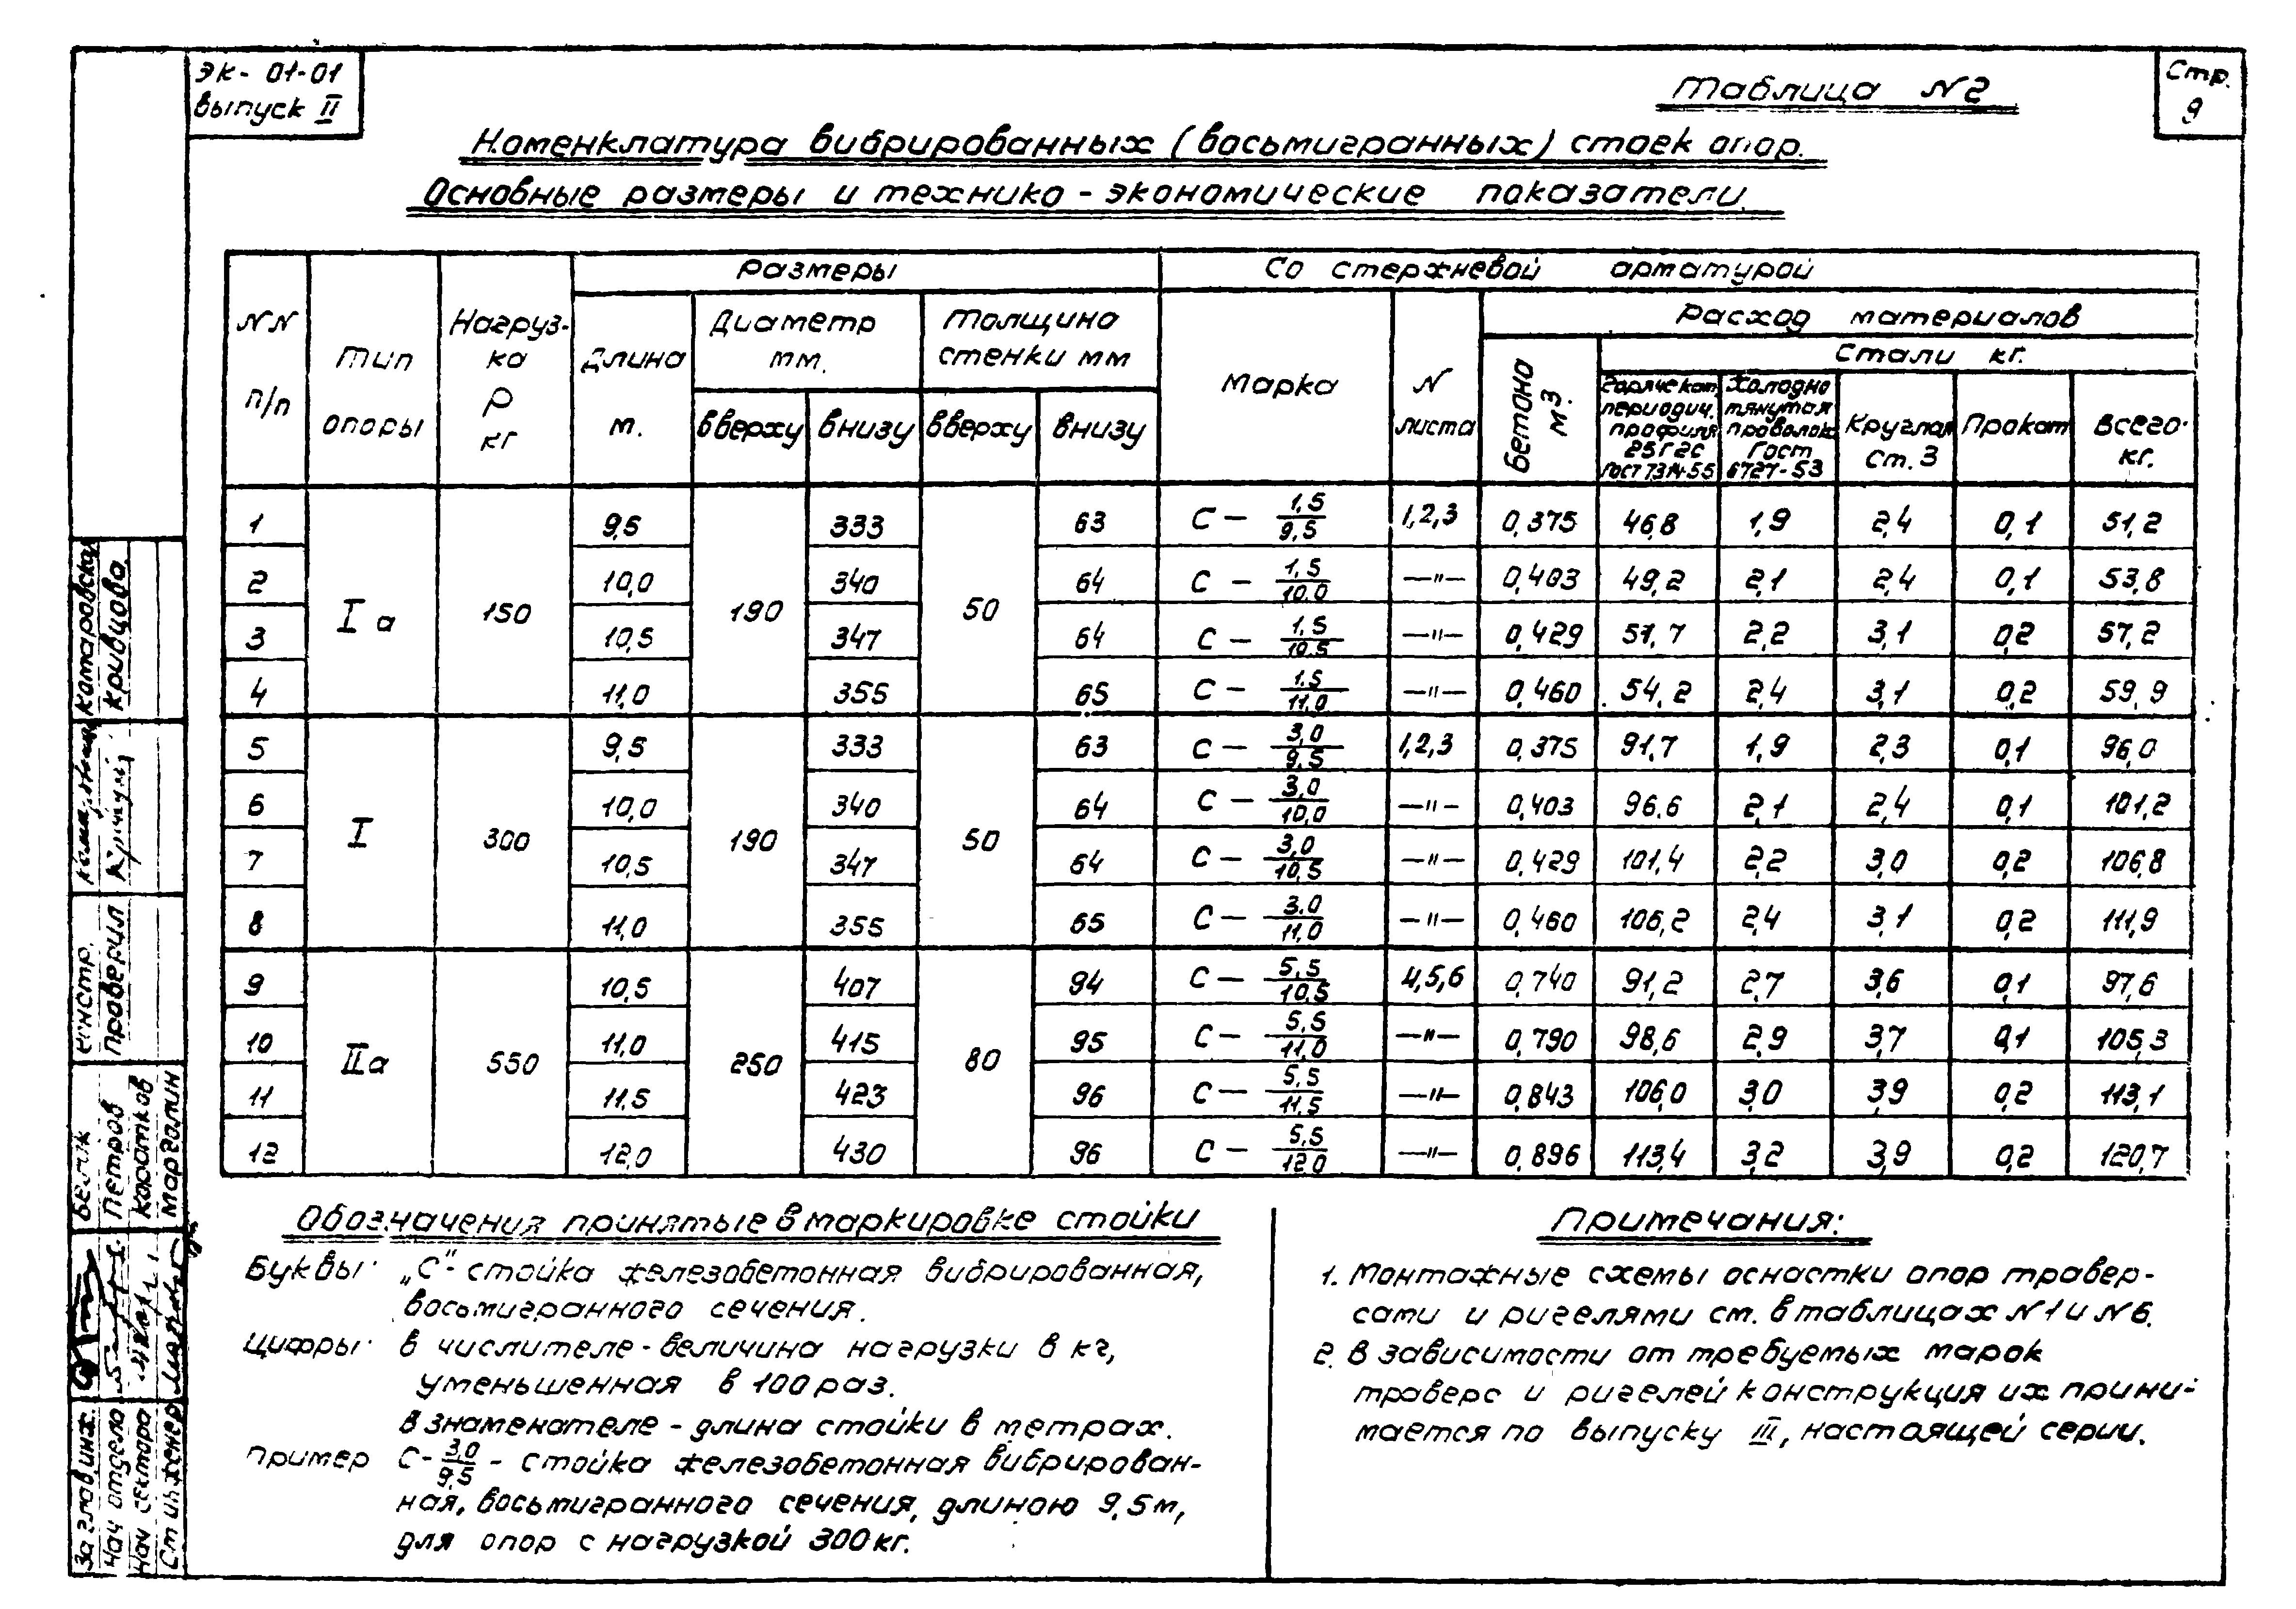 ЭК- 01-01
выпуск II
Стр.
9
Таблица N2
Номенклатура вибрированных (восьмигранных) стоек опор.
Основные размеры и технико - экономические показатели
NN п/п
Тип опоры
Нагруз-ка Р кг
Размеры
Длина м.
Диаметр мм.
вверху внизу
Толщина стенки мм
вверху внизу
Со стержневой арматурой
Марка
N листа
Расход материалов
Бетона м3.
Стали кг.
Горячекат. периодич. профиля 25Г2С ГОСТ 7314-55
Холодно тянутая проволок. ГОСТ 6727-53
Круглая Ст. 3
Прокат
Всего. кг.
1 Iа 150 9,5 190 333 50 63 С – 1,5/9,5 1,2,3 0,375 46,8 1,9 2,4 0,1 51,2
2 10,0 340 64 С – 1,5/10,0 —"— 0,403 49,2 2,1 2,4 0,1 53,8
3 10,5 347 64 С – 1,5/10,5 —"— 0,429 51,7 2,2 3,1 0,2 57,2
4 11,0 355 65 С – 1,5/11,0 —"— 0,460 54,2 2,4 3,1 0,2 59,9
5 I 300 9,5 190 333 50 63 С – 3,0/9,5 1,2,3 0,375 91,7 1,9 2,3 0,1 96,0
6 10,0 340 64 С – 3,0/10,0 —"— 0,403 96,6 2,1 2,4 0,1 101,2
7 10,5 347 64 С – 3,0/10,5 —"— 0,429 101,4 2,2 3,0 0,2 106,8
8 11,0 355 65 С – 3,0/11,0 —"— 0,460 106,2 2,4 3,1 0,2 111,9
9 IIа 550 10,5 250 407 80 94 С – 5,5/10,5 4,5,6 0,740 91,2 2,7 3,6 0,1 97,6
10 11,0 415 95 С – 5,5/11,0 —"— 0,790 98,6 2,9 3,7 0,1 105,3
11 11,5 423 96 С – 5,5/11,5 —"— 0,843 106,0 3,0 3,9 0,2 113,1
12 12,0 430 96 С – 5,5/12,0 —"— 0,896 113,4 3,2 3,9 0,2 120,7
Обозначения принятые в маркировке стойки
Буквы: „С"- стойка железобетонная вибрированная,
восьмигранного сечения.
Цифры: в числителе - величина нагрузки в кг,
уменьшенная в 100 раз.
в знаменателе - длина стойки в метрах.
Пример С- 3,0/9,5 - стойка железобетонная вибрирован-
ная, восьмигранного сечения, длиною 9,5 м,
для опор с нагрузкой 300 кг.
Примечания:
1. Монтажные схемы оснастки опор травер-
сами и ригелями см. в таблицах N1 и N6.
2. В зависимости от требуемых марок
траверс и ригелей конструкция их прини-
мается по выпуску III, настоящей серии.
Зам глав инж.
Нач отдела Петров
Нач сектора Коротков
Ст инженер Марголин
Проверил Кривцова